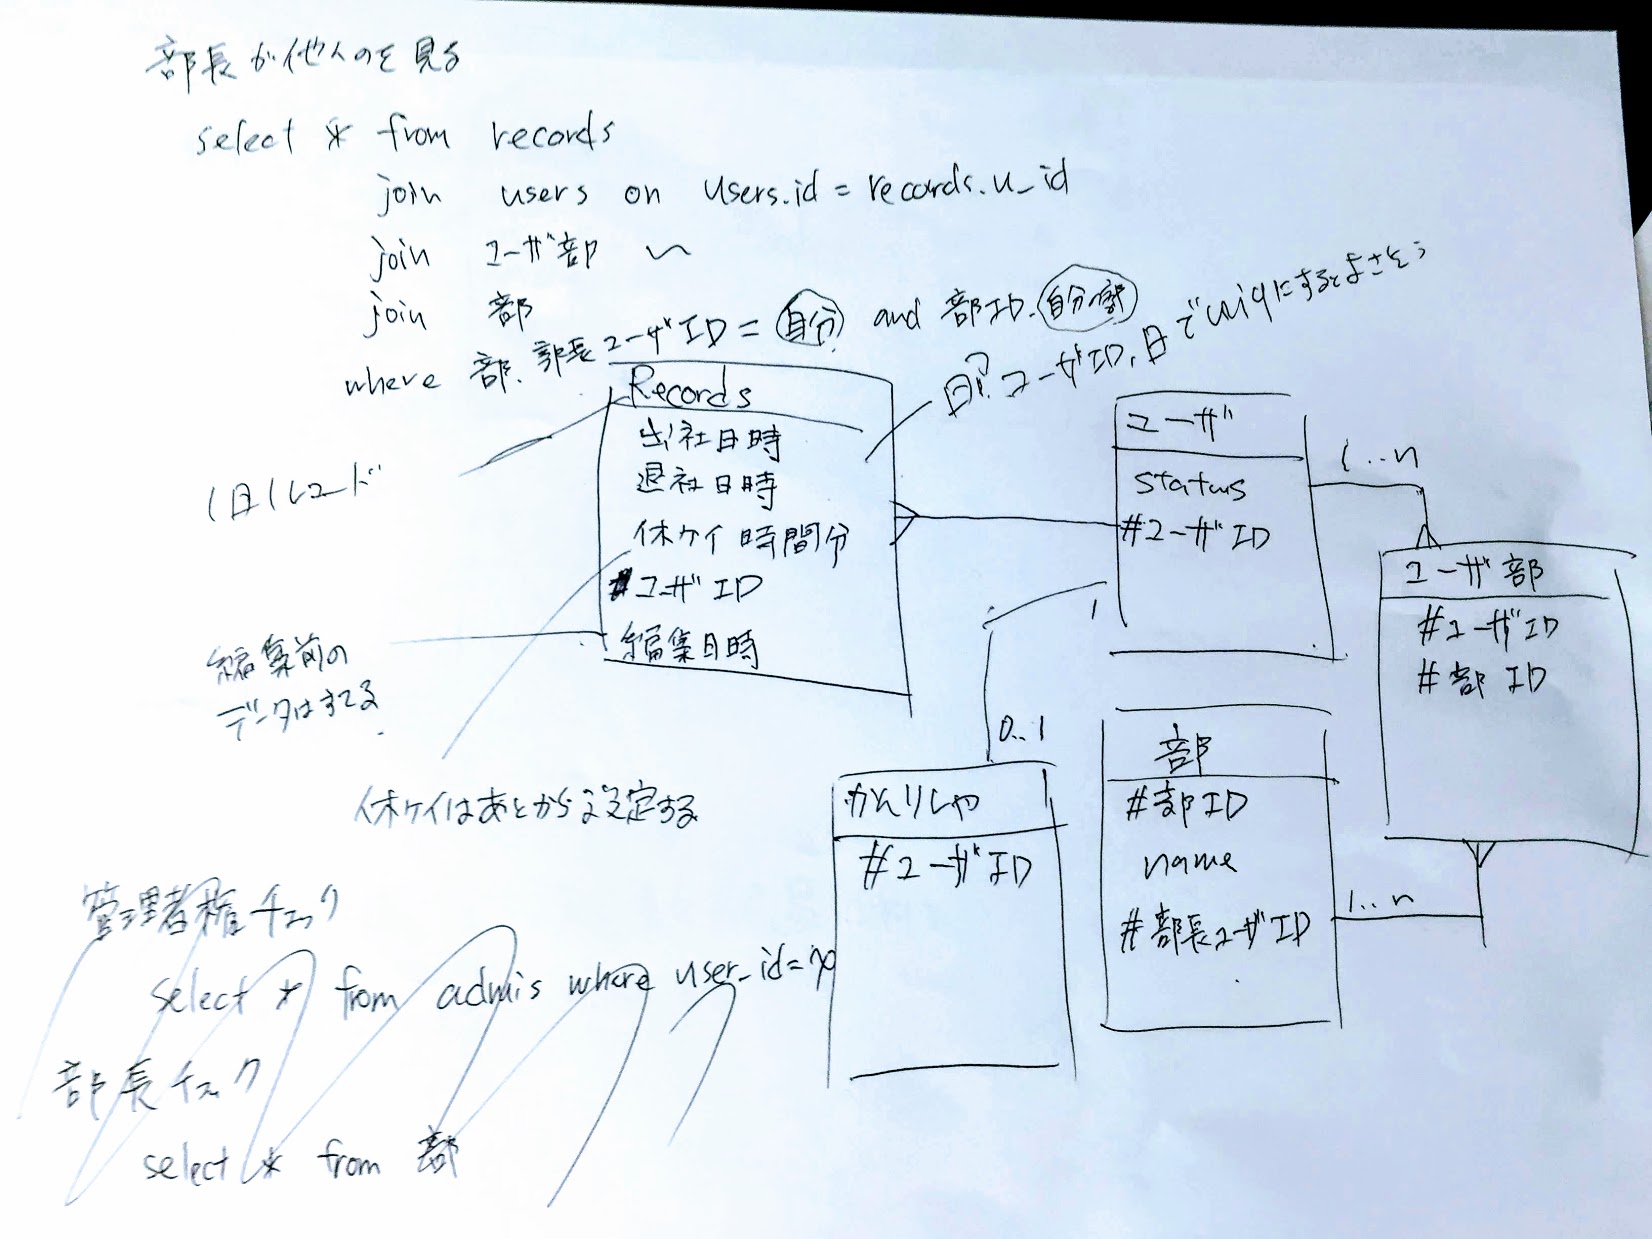 部長が他人のを見る
select * from records
join users on users.id = records.u_id
join ユーザ部 〜
join 部
where 部.部長ユーザID = 自分 and 部ID.自分の部
日? ユーザID,日でuniqにするとよさそう
Records
出社日時
退社日時
休ケイ時間分
#ユーザID
編集日時
1日1レコード
編集前の
データはすてる
休ケイはあとから設定する
ユーザ
status
#ユーザID
1..n
ユーザ部
#ユーザID
#部ID
1
0..1
かんりしゃ
#ユーザID
部
#部ID
name
#部長ユーザID
1..n
管理者権チェック
select * from admis where user_id=
部長チェック
select * from 部